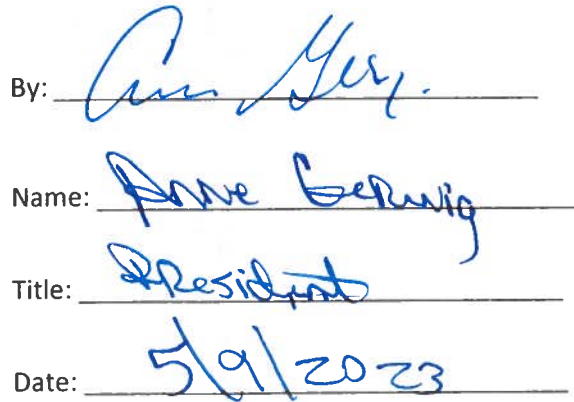 By:
Name: Anne Gerwig
Title: President
Date: 5/9/2023